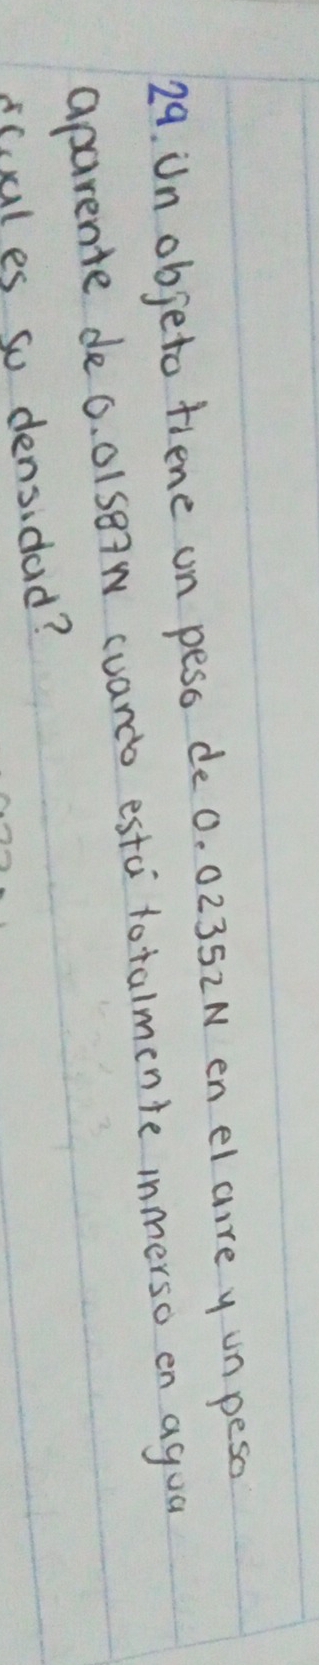 29. Un objeto tiene un peso de 0.02352N en el aire y un peso
aparente de 0.01587N cuando está totalmente inmerso en agua
¿Cual es su densidad?